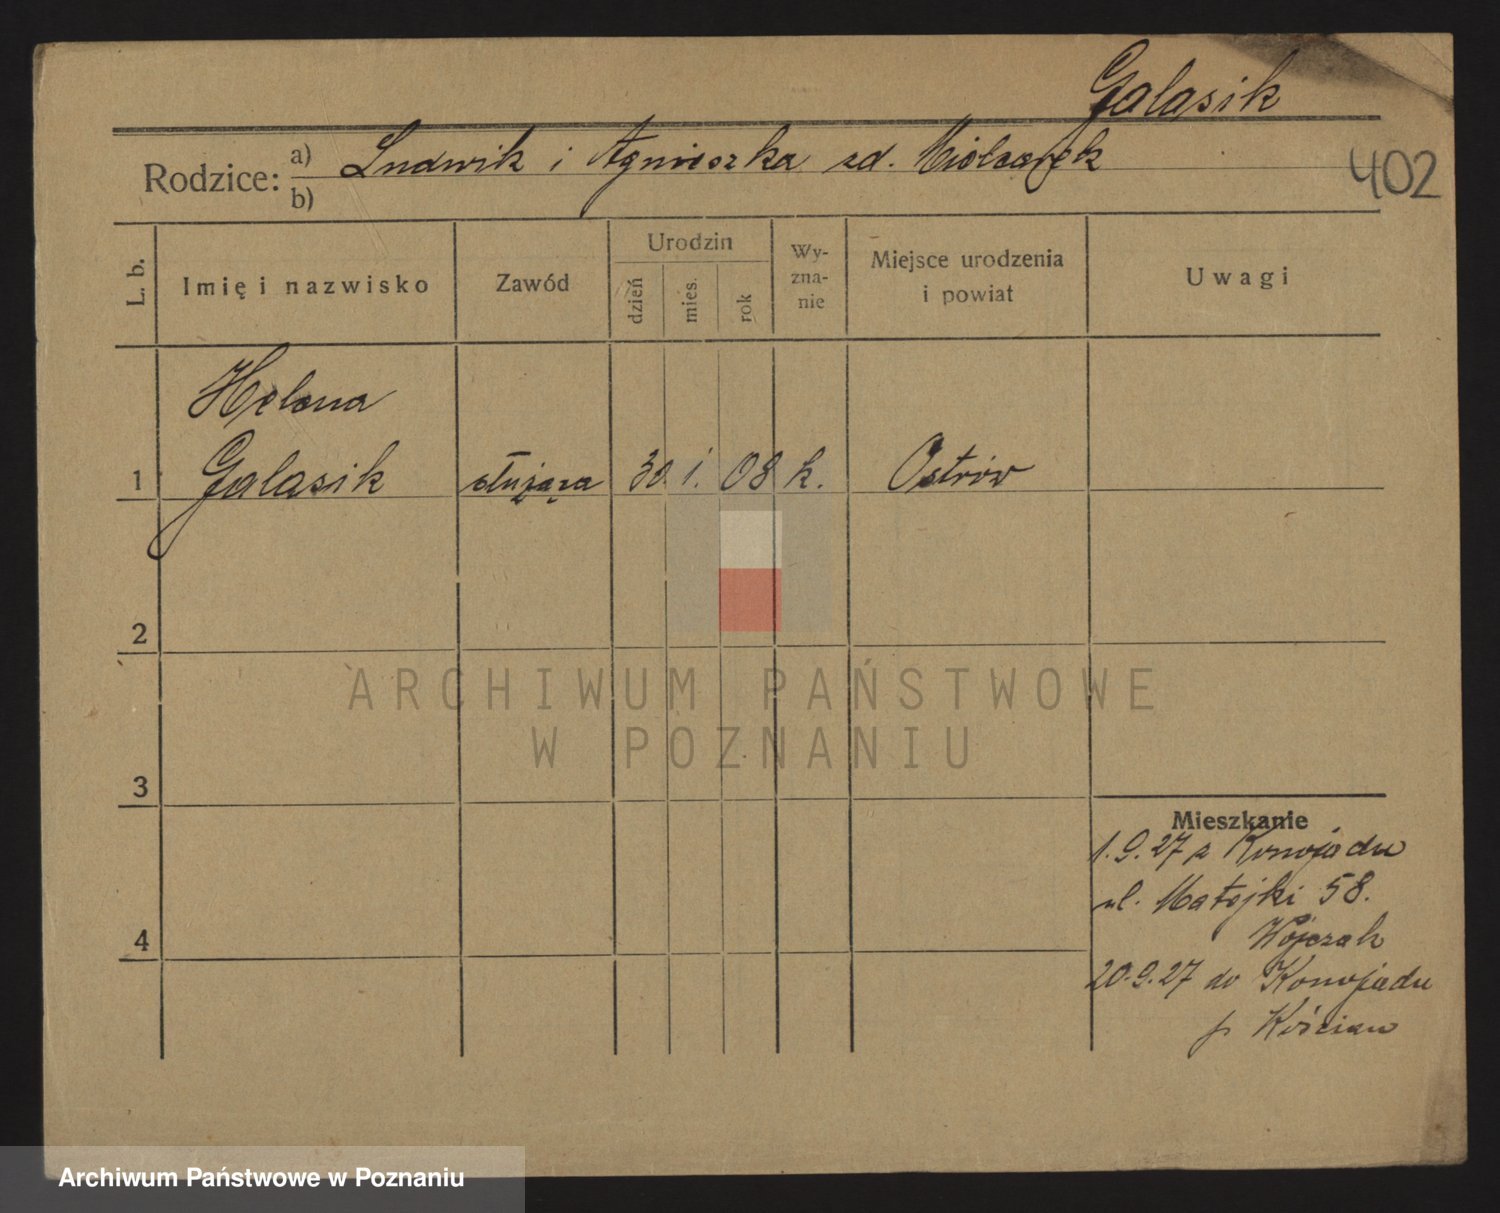 Galasik
Rodzice: a) Ludwik i Agnieszka zd. Miolcarek
b)
402
L. b.
Imię i nazwisko
Zawód
Urodzin
dzień
mies.
rok
Wy-
zna-
nie
Miejsce urodzenia
i powiat
Uwagi
Helena
1 Galasik służąca 30 1. 08 k. Ostrów
2
ARCHIWUM PAŃSTWOWE
W POZNANIU
3
Mieszkanie
1.9.27 z Konojadu
ul. Matejki 58.
Wójczak
4
20.9.27 do Konojadu
p. Kościan
Archiwum Państwowe w Poznaniu